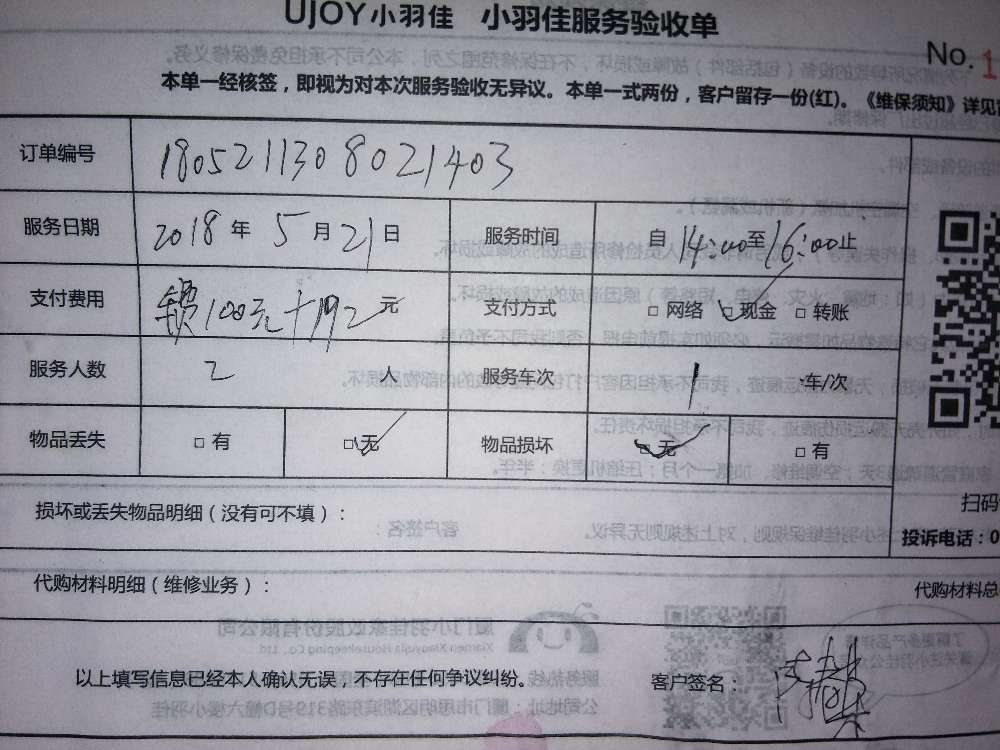 UJOY小羽佳 小羽佳服务验收单
No. 1
本单一经核签，即视为对本次服务验收无异议。本单一式两份，客户留存一份(红)。《维保须知》详见
订单编号 1805211308021403
服务日期 2018 年 5 月 21 日 服务时间 自 14:00 至 16:00 止
支付费用 费100元+192元 支付方式 □ 网络 □ 现金 □ 转账
服务人数 2 人 服务车次 1 车/次
物品丢失 □ 有 □ 无 物品损坏 □ 无 □ 有
扫码
损坏或丢失物品明细（没有可不填）：
投诉电话：0
代购材料明细（维修业务）： 代购材料总
以上填写信息已经本人确认无误，不存在任何争议纠纷。 客户签名：